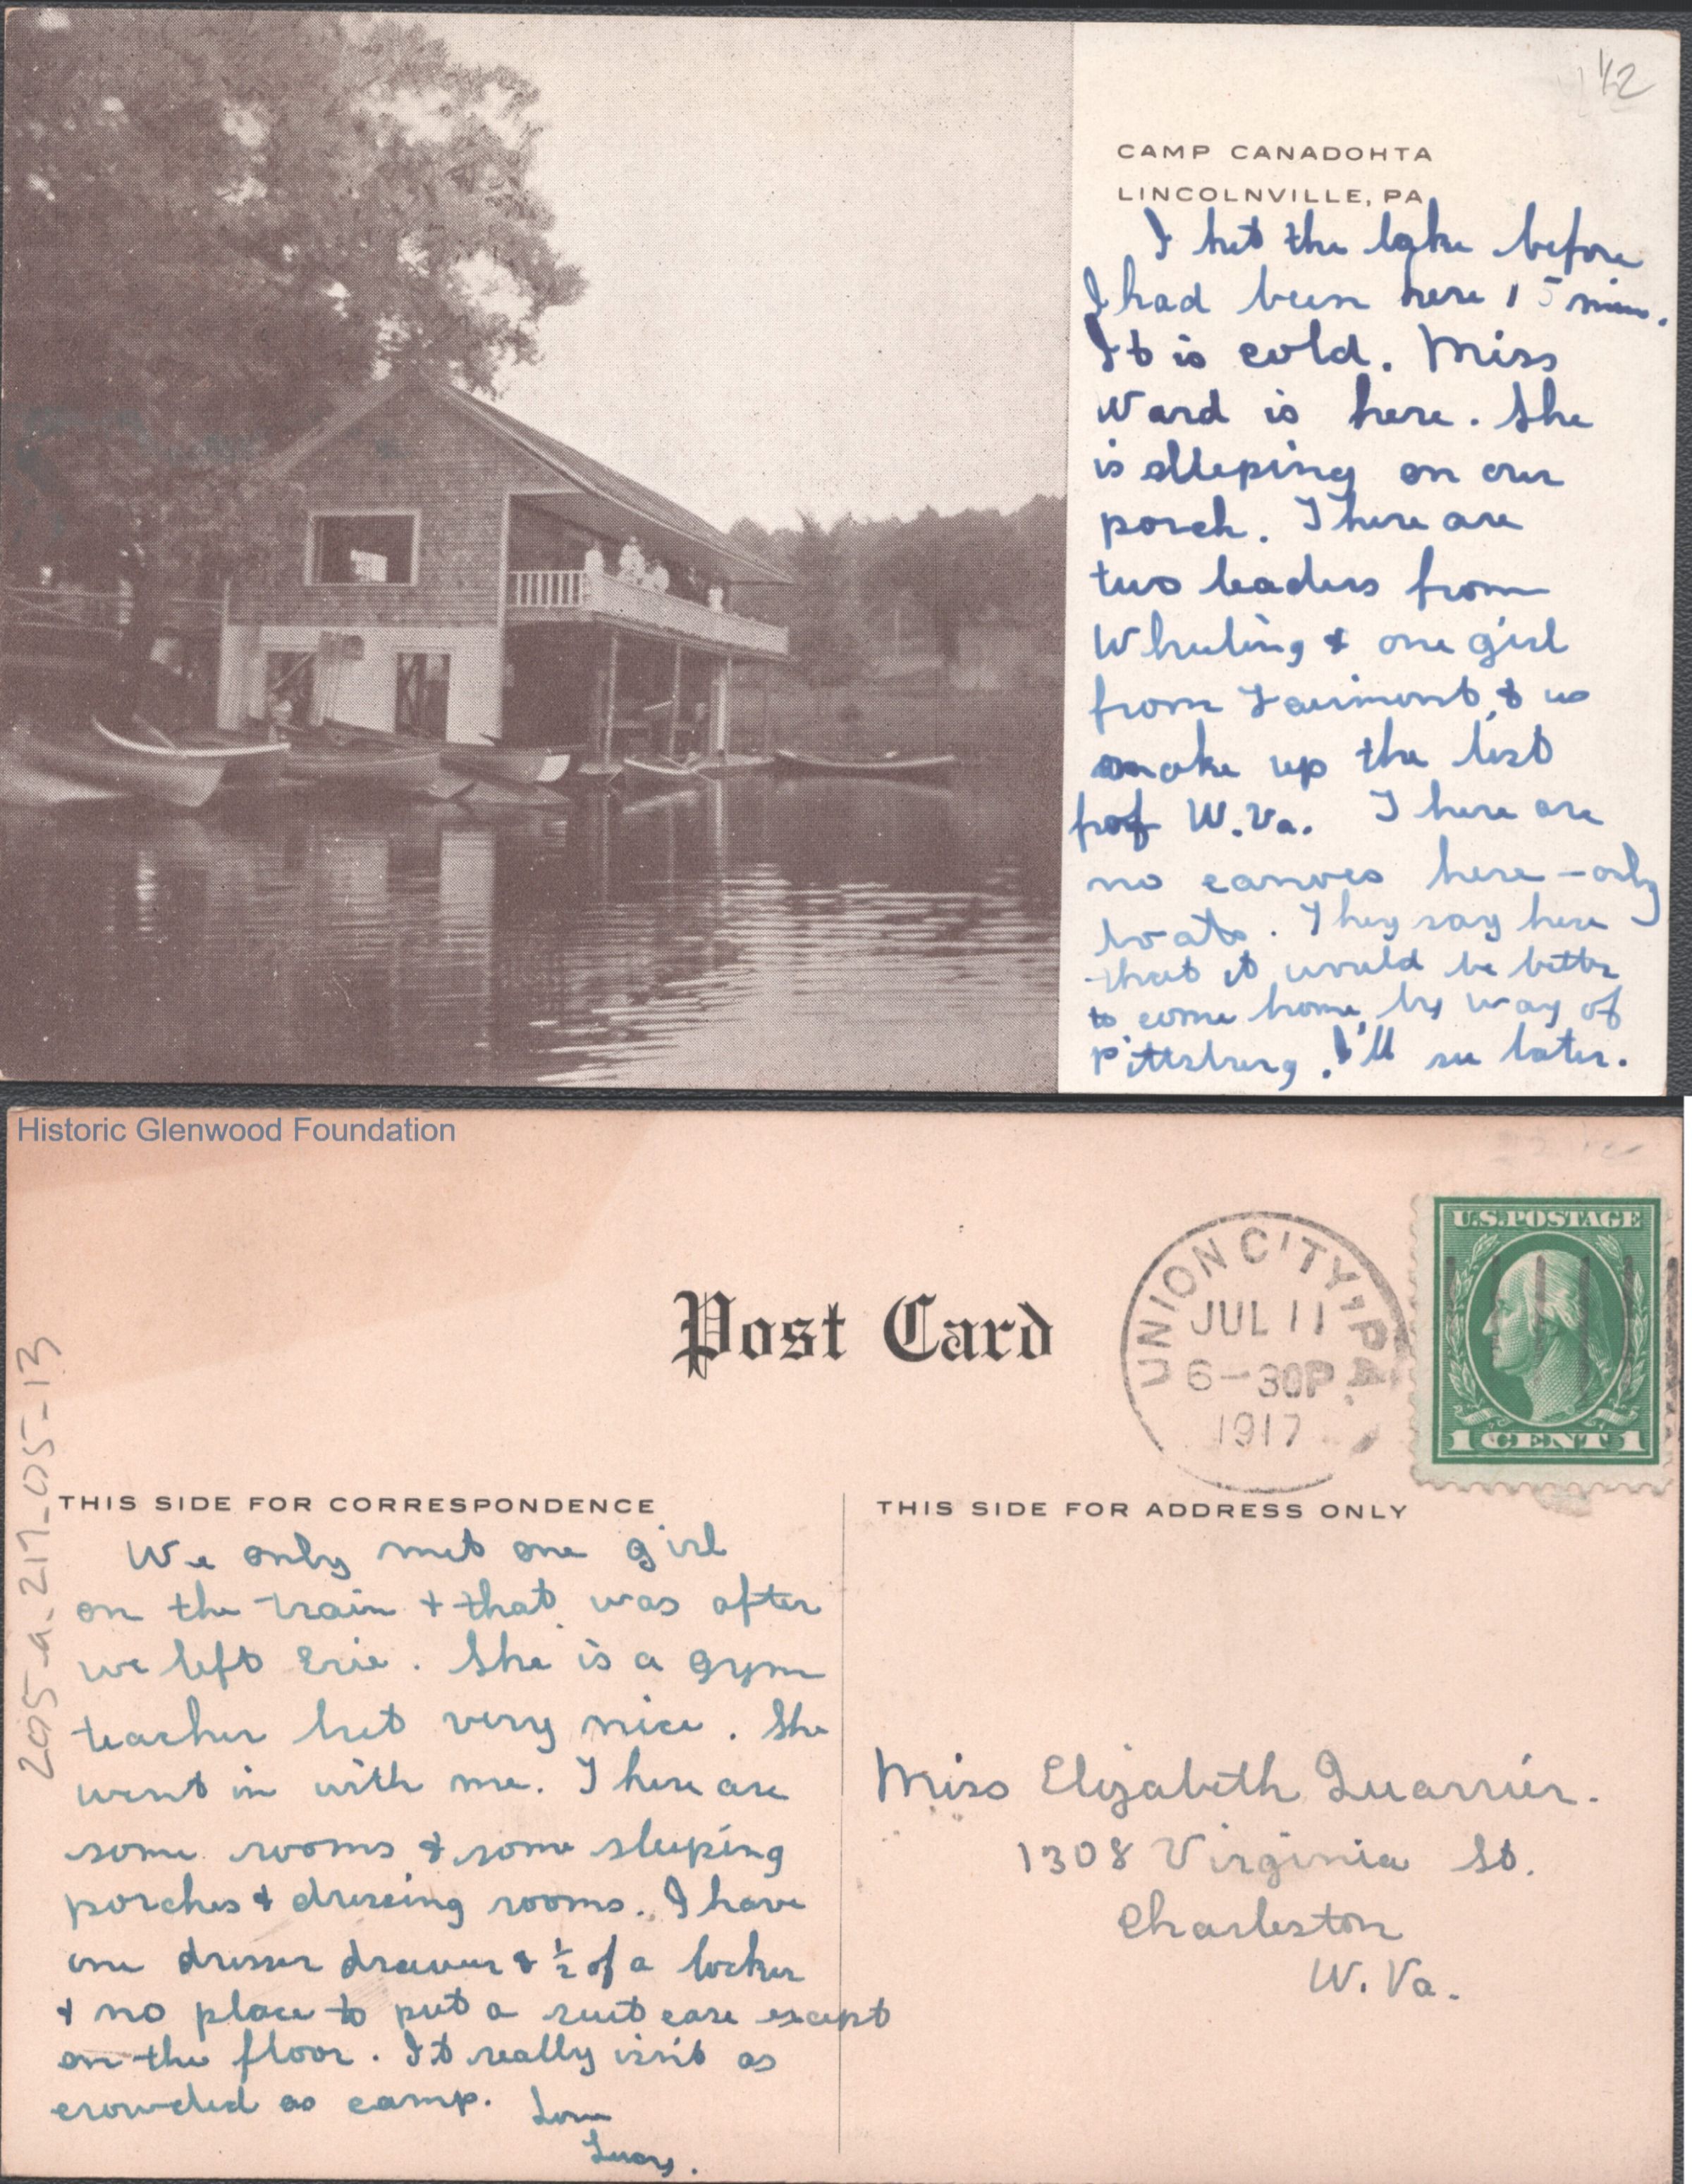 1/2
CAMP CANADOHTA
LINCOLNVILLE, PA
I hit the lake before
I had been here 15 min.
It is cold. Miss
Ward is here. She
is slleping on our
porch. There are
two leaders from
Wheeling & one girl
from Fairmont, & us
make up the list
of W.Va. There are
no canoes here – only
boats. They say here
that it would be better
to come home by way of
Pittsburg. I'll see later.
Historic Glenwood Foundation
Post Card
UNION CITY, PA.
JUL 11
6-30P
1917
U.S. POSTAGE
1 CENT 1
2005-a.217-05-13
THIS SIDE FOR CORRESPONDENCE
We only met one girl
on the train & that was after
we left Erie. She is a gym
teacher but very nice. She
went in with me. There are
some rooms & some sleeping
porches & dressing rooms. I have
one dresser drawer & ½ of a locker
& no place to put a suit case except
on the floor. It really isn't as
crowded as camp. Love
Lucy.
THIS SIDE FOR ADDRESS ONLY
Miss Elizabeth Quarrier.
1308 Virginia St.
Charleston
W. Va.